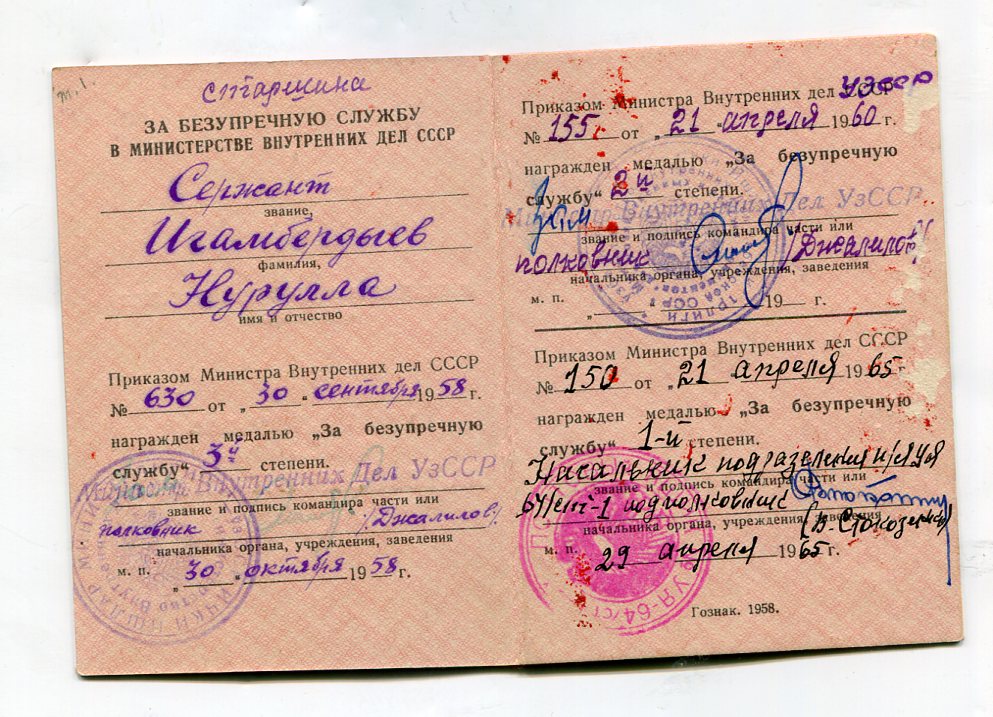 т.1.
старшина
ЗА БЕЗУПРЕЧНУЮ СЛУЖБУ
В МИНИСТЕРСТВЕ ВНУТРЕННИХ ДЕЛ СССР
Сержант
звание,
Игамбердыев
фамилия,
Нурулла
имя и отчество
Приказом Министра Внутренних дел СССР
№ 630 от „30 “ сентября 1958 г.
награжден медалью „За безупречную
службу“ 3й степени.
Министр Внутренних Дел УзССР
звание и подпись командира части или
полковник /Джалилов/
начальника органа, учреждения, заведения
м. п. „ 30 “ октября 1958 г.
Приказом Министра Внутренних дел УзССР
№ 155 от „ 21 “ апреля 1960 г.
награжден медалью „За безупречную
службу“ 2й степени.
Зам Министр Внутренних Дел УзССР
звание и подпись командира части или
полковник /Джалилов/
начальника органа, учреждения, заведения
м. п. „ “ 19 г.
Приказом Министра Внутренних дел СССР
№ 150 от „ 21 апреля 1965 г.
награжден медалью „За безупречную
службу“ 1-й степени.
п/я УЯ
звание и подпись командира части или
подполковник
начальника органа, учреждения, заведения
м. п. 29 апреля 1965 г.
УЯ-64/
Гознак. 1958.